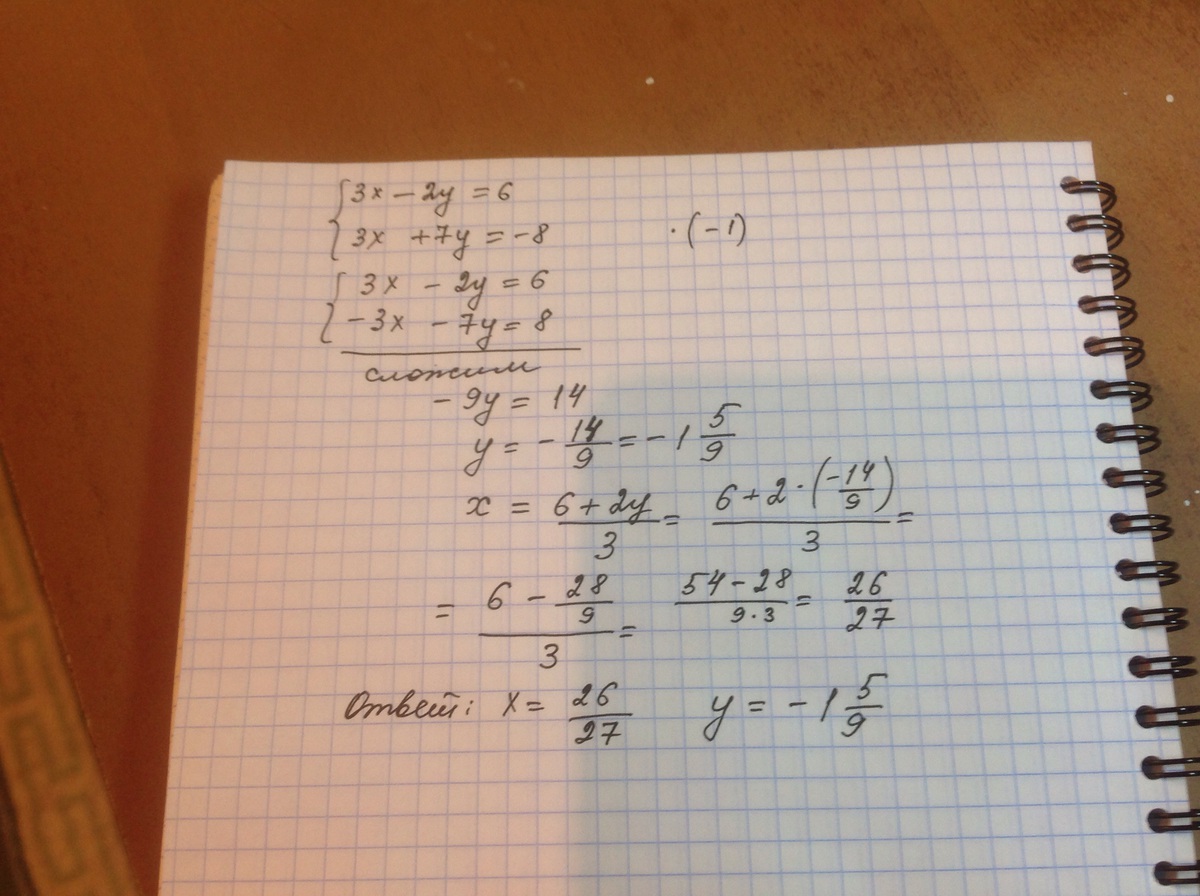 3x - 2y = 6
3x + 7y = -8 · (-1)
3x - 2y = 6
-3x - 7y = 8
сложим
- 9y = 14
y = - 14/9 = - 1 5/9
x = (6 + 2y)/3 = (6 + 2 · (-14/9))/3 =
= (6 - 28/9)/3 = (54 - 28)/(9 · 3) = 26/27
Ответ: x = 26/27 y = - 1 5/9